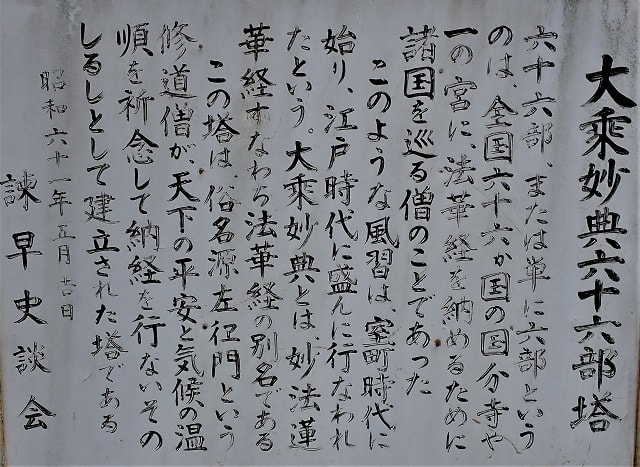 大乗妙典六十六部塔
六十六部、または単に六部という
のは、全国六十六か国の国分寺や
一の宮に、法華経を納めるために
諸国を巡る僧のことであった
このような風習は、室町時代に
始り、江戸時代に盛んに行なわれ
たという。大乗妙典とは、妙法蓮
華経すなわち法華経の別名である
この塔は、俗名源左衽門という
修道僧が、天下の平安と気候の温
順を祈念して納経を行ないその
しるしとして建立された塔である
昭和六十一年五月廿日
諫早史談会